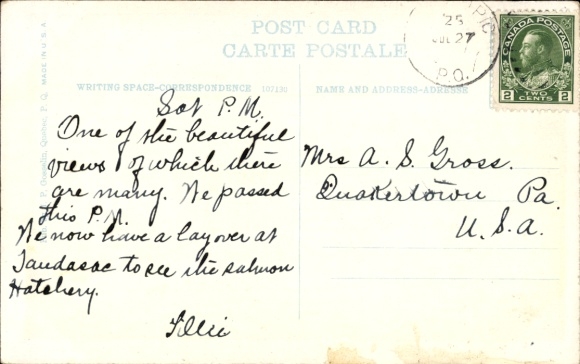 POST CARD
CARTE POSTALE
25
27
P.Q.
CANADA POSTAGE
2 CENTS 2
WRITING SPACE-CORRESPONDENCE 107130
NAME AND ADDRESS-ADRESSE
MADE IN U.S.A.
Quebec, P. Q.
Sat P.M.
One of the beautiful
views of which there
are many. We passed
this P.M.
We now have a layover at
Taudasac to see the salmon
Hatchery.
Tillie
Mrs A. S. Gross.
Quakertown Pa.
U.S.A.